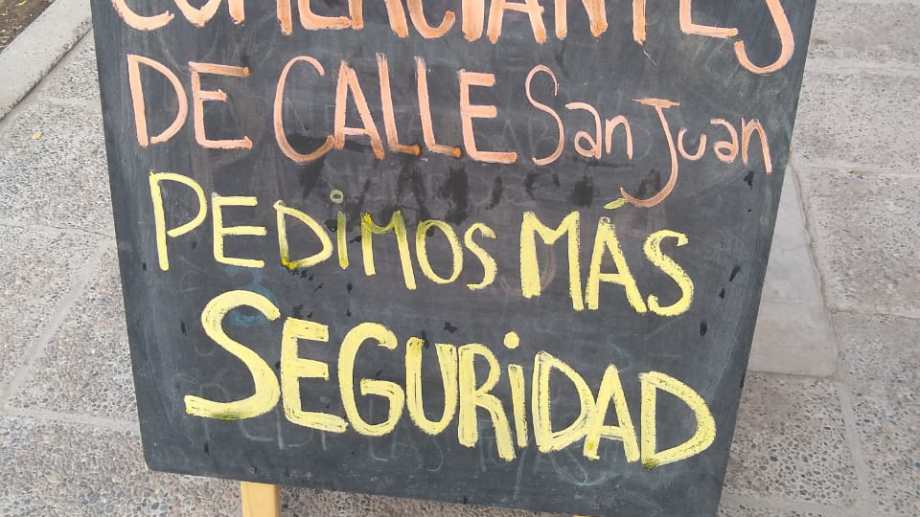 COMERCIANTES
DE CALLE San Juan
PEDiMOS MÁS
SEGURiDAD